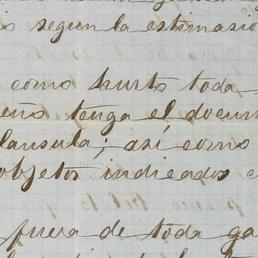 s segun la estimasio
como hurto toda
eño tenga el docum
lausula; así como
objetos indicados c
fuera de toda ga